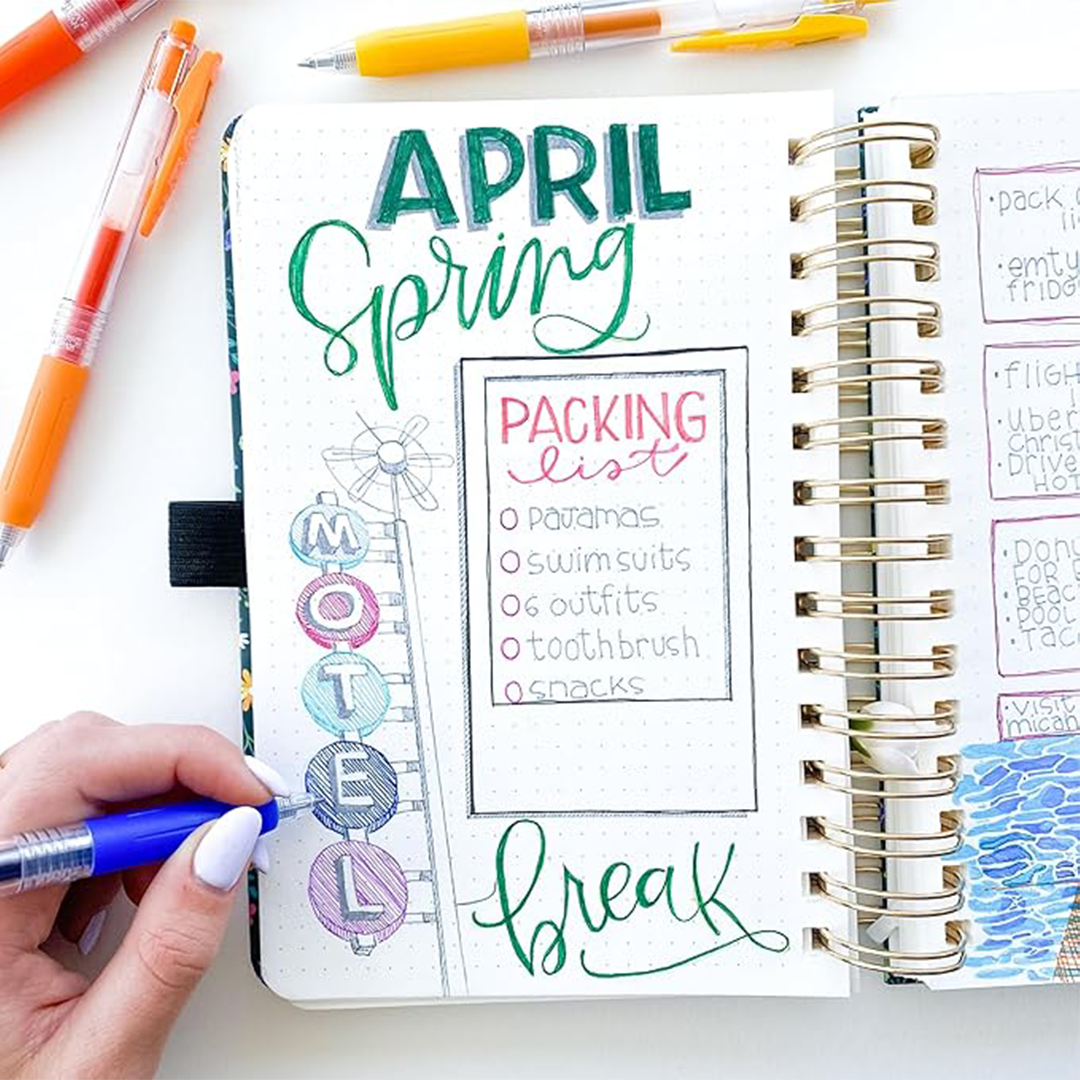 APRIL
Spring
PACKING
list
pajamas
swimsuits
6 outfits
toothbrush
snacks
MOTEL
break
·pack
·emty
·fliGH
·Uber
christ
·Drive
HOT
·Donu
FOR B
·BEAC
POOL
·TAC
·Visit
micah